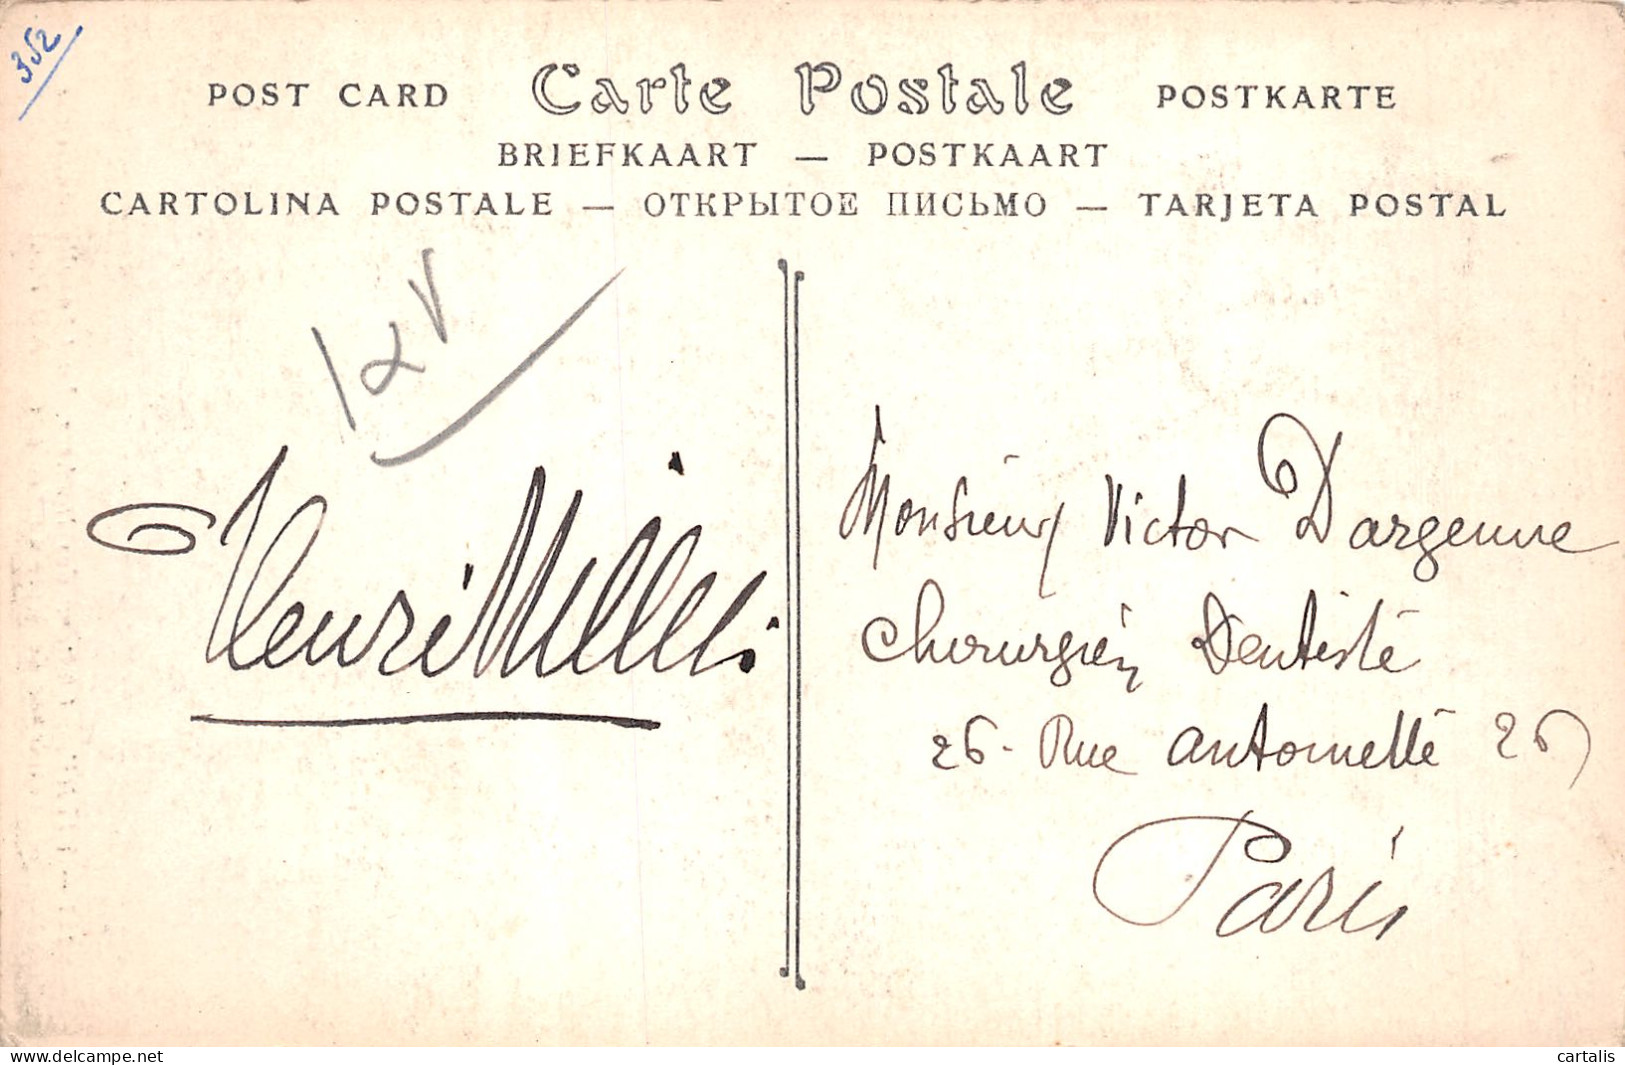 352
POST CARD Carte Postale POSTKARTE
BRIEFKAART — POSTKAART
CARTOLINA POSTALE — ОТКРЫТОЕ ПИСЬМО — TARJETA POSTAL
Henri
Monsieur Victor Dargenne
Chirurgien Dentiste
26 - Rue Antoinette 26
Paris
delcampe.net
cartalis